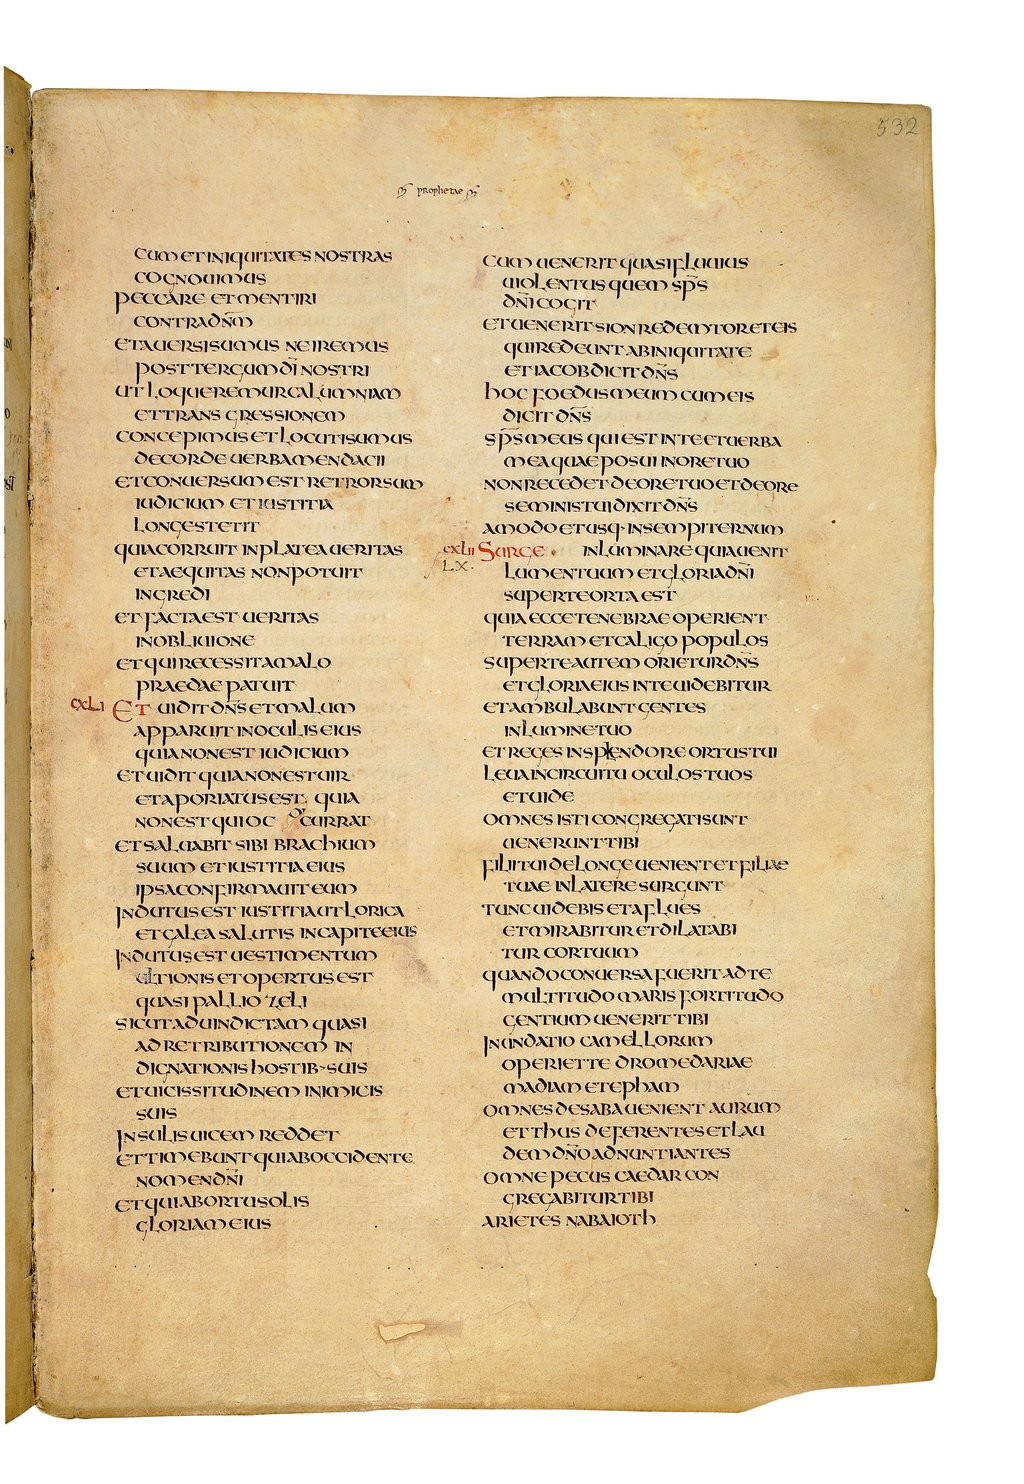 532
prophetae
CUM ET INIQUITATES NOSTRAS
COGNOUIMUS
PECCARE ET MENTIRI
CONTRA DN̄M
ET AUERSI SUMUS NE IREMUS
POST TERGUM DĪ NOSTRI
UT LOQUEREMUR CALUMNIAM
ET TRANSGRESSIONEM
CONCEPIMUS ET LOCUTI SUMUS
DE CORDE UERBA MENDACII
ET CONUERSUM EST RETRORSUM
IUDICIUM ET IUSTITIA
LONGE STETIT
QUIA CORRUIT IN PLATEA UERITAS
ET AEQUITAS NON POTUIT
INGREDI
ET FACTA EST UERITAS
IN OBLIUIONE
ET QUI RECESSIT A MALO
PRAEDAE PATUIT
CXLI ET UIDIT DN̄S ET MALUM
APPARUIT IN OCULIS EIUS
QUIA NON EST IUDICIUM
ET UIDIT QUIA NON EST UIR
ET APORIATUS EST QUIA
NON EST QUI OCCURRAT
ET SALUABIT SIBI BRACHIUM
SUUM ET IUSTITIA EIUS
IPSA CONFIRMAUIT EUM
INDUTUS EST IUSTITIA UT LORICA
ET GALEA SALUTIS IN CAPITE EIUS
INDUTUS EST UESTIMENTUM
ULTIONIS ET OPERTUS EST
QUASI PALLIO ZELI
SICUT AD UINDICTAM QUASI
AD RETRIBUTIONEM IN
DIGNATIONIS HOSTIB· SUIS
ET UICISSITUDINEM INIMICIS
SUIS
INSULIS UICEM REDDET
ET TIMEBUNT QUI AB OCCIDENTE
NOMEN DN̄I
ET QUI AB ORTU SOLIS
GLORIAM EIUS
CUM UENERIT QUASI FLUUIUS
UIOLENTUS QUEM SP̄S
DN̄I COGIT
ET UENERIT SION REDEMTOR ET EIS
QUI REDEUNT AB INIQUITATE
ET IACOB DICIT DN̄S
HOC FOEDUS MEUM CUM EIS
DICIT DN̄S
SP̄S MEUS QUI EST IN TE ET UERBA
MEA QUAE POSUI IN ORE TUO
NON RECEDET DE ORE TUO ET DE ORE
SEMINIS TUI DIXIT DN̄S
A MODO ET USQ· IN SEMPITERNUM
CXLII SURGE INLUMINARE QUIA UENIT
LX. LUMEN TUUM ET GLORIA DN̄I
SUPER TE ORTA EST
QUIA ECCE TENEBRAE OPERIENT
TERRAM ET CALIGO POPULOS
SUPER TE AUTEM ORIETUR DN̄S
ET GLORIA EIUS IN TE UIDEBITUR
ET AMBULABUNT GENTES
IN LUMINE TUO
ET REGES IN SPLENDORE ORTUS TUI
LEUA IN CIRCUITU OCULOS TUOS
ET UIDE
OMNES ISTI CONGREGATI SUNT
UENERUNT TIBI
FILII TUI DE LONGE UENIENT ET FILIAE
TUAE IN LATERE SURGUNT
TUNC UIDEBIS ET AFLUES
ET MIRABITUR ET DILATABI
TUR COR TUUM
QUANDO CONUERSA FUERIT AD TE
MULTITUDO MARIS FORTITUDO
GENTIUM UENERIT TIBI
INUNDATIO CAMELLORUM
OPERIET TE DROMEDARIAE
MADIAM ET EPHAM
OMNES DE SABA UENIENT AURUM
ET THUS DEFERENTES ET LAU
DEM DN̄O ADNUNTIANTES
OMNE PECUS CAEDAR CON
GREGABITUR TIBI
ARIETES NABAIOTH